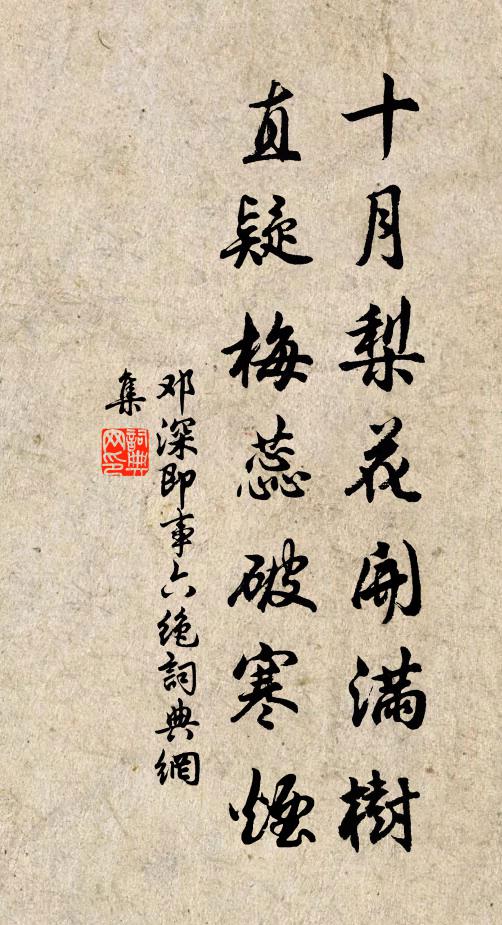 十月梨花開滿樹
直疑梅蕊破寒煙
邓深即事六绝詞典網
集
詞典
网印